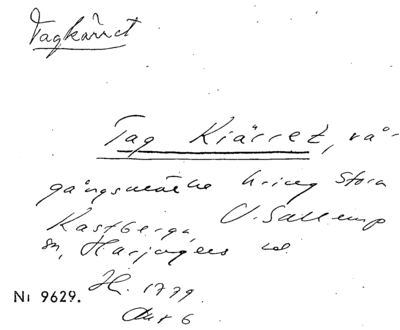 Tagkärret
Tag Kiärret, rå-
gångsmärke kring Stora
Kastberga V. Sallerup
sn, Harjagers hd.
H. 1779.
Akt 6
Nı 9629.